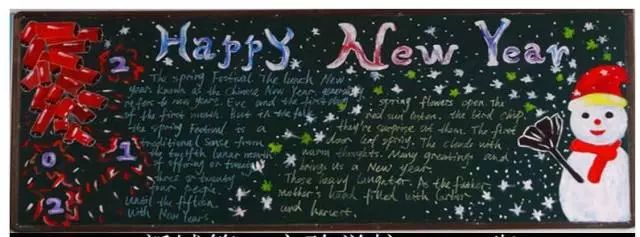 Happy New Year
2
0
1
2
The spring Festival The lunch New
year known as the Chinese New Year generally
refers to new years. Eve and the first day
of the first month. But in the folk
the spring Festival is a
traditional sense from
the twelfth lunar month
offering or twenty
three or twenty
four people
until the fifteen
with New Years.
spring flowers open. The
red sun listen. the bird chirp.
they're surprise at them. The first
door leaf spring. The clouds with
warm thoughts. Many greetings and
brings us a New year.
There laugter. As the father
mother's hand filled with
and harvest.